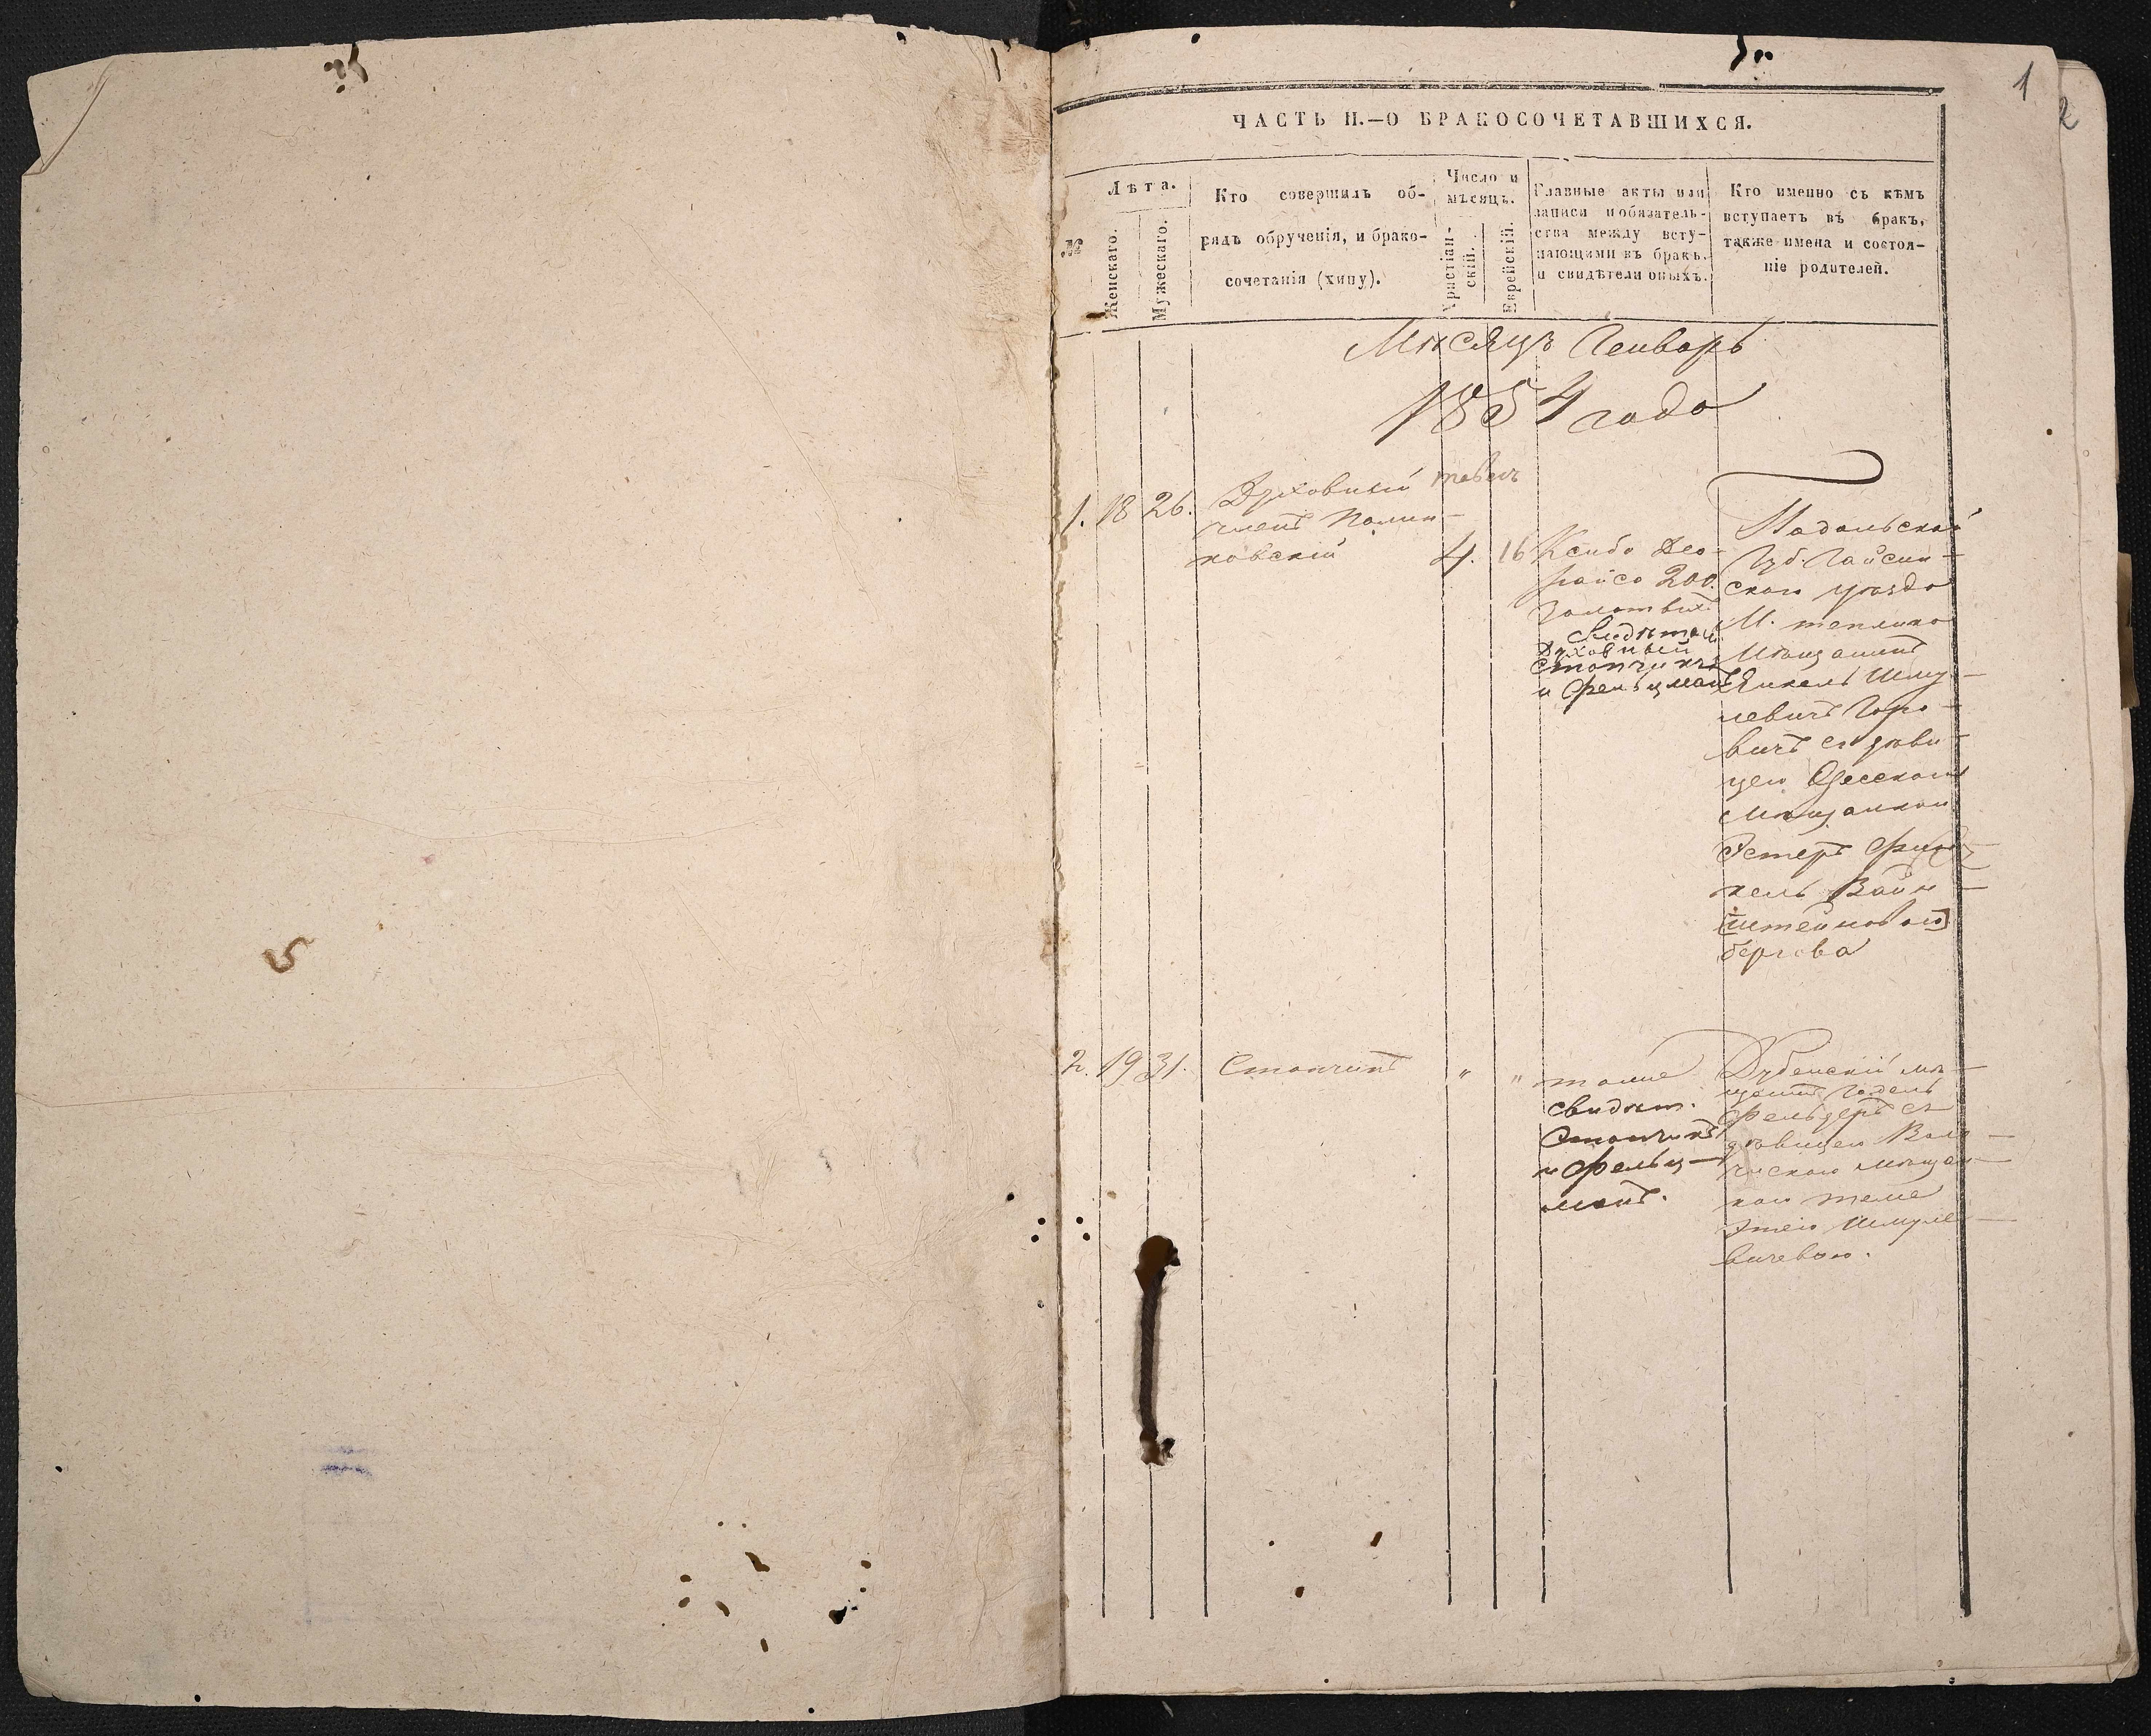 1
2
ЧАСТЬ II.—О БРАКОСОЧЕТАВШИХСЯ.
№
Лѣта.
Женскаго.
Мужескаго.
Кто совершилъ об-
рядъ обрученія, и брако-
сочетанія (хипу).
Число и
мѣсяцъ.
Христіан-
скій.
Еврейскій.
Главные акты или
записи и обязатель-
ства между всту-
пающими въ бракъ,
и свидѣтели оныхъ.
Кто именно съ кѣмъ
вступаетъ въ бракъ,
также имена и состоя-
ніе родителей.
Мѣсяцъ Генварь
1854 года
1. 18 26.
Духовный
членъ Полин-
ковскій
тевесъ
4. 16
Ксибо Део-
райсо 200.
Золотыхъ
Свидѣтели
Духовный
Столчикъ
и Фельцманъ
Подольской
Губ. Гайсин-
скаго уѣзда
М. теплика
Мѣщанинъ
Янкель Шму-
левичъ Горо-
вичъ съ дѣви-
цею Одесскою
мѣщанкою
Эстеръ Фрин-
кель Вайн-
[штейновою]
бергова
2. 19 31.
Столчикъ
" "
тоже
свидѣт.
Столчикъ
и Фельц-
манъ.
Дубенскій мѣ-
щанинъ Годель
Фельдеръ съ
дѣвицею
мѣщан-
кою
Этею Шмуле-
вичевою.